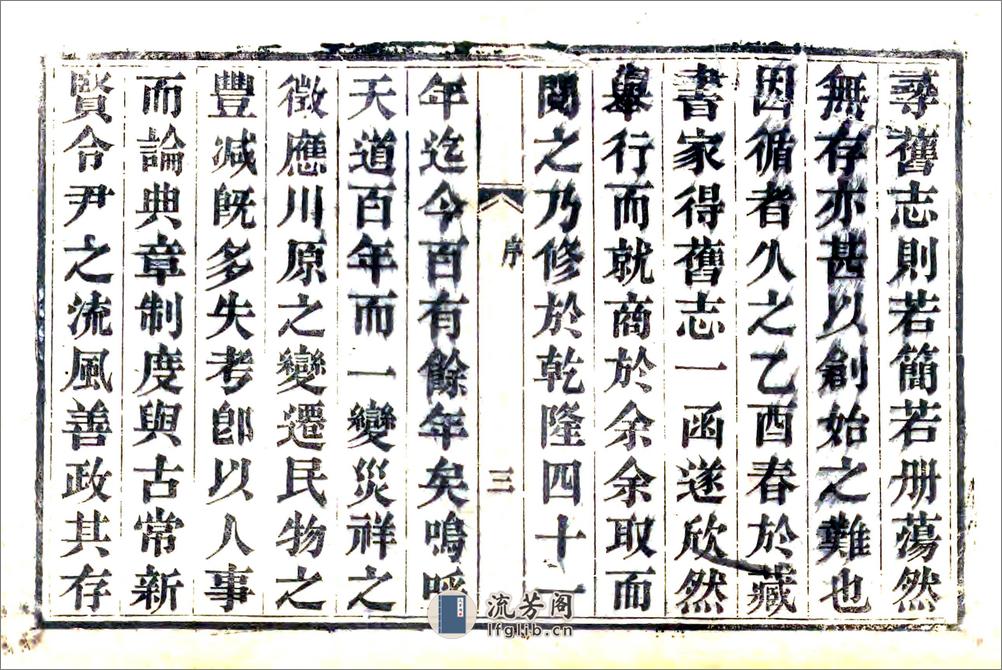 尋舊志則若簡若册蕩然
無存亦甚以創始之難也
因循者久之乙酉春於藏
書家得舊志一函遂欣然
舉行而就商於余余取而
閱之乃修於乾隆四十一
序 三
年迄今百有餘年矣嗚呼
天道百年而一變災祥之
徵應川原之變遷民物之
豐減既多失考卽以人事
而論典章制度與古常新
賢令尹之流風善政其存
流芳阁
lfglib.cn